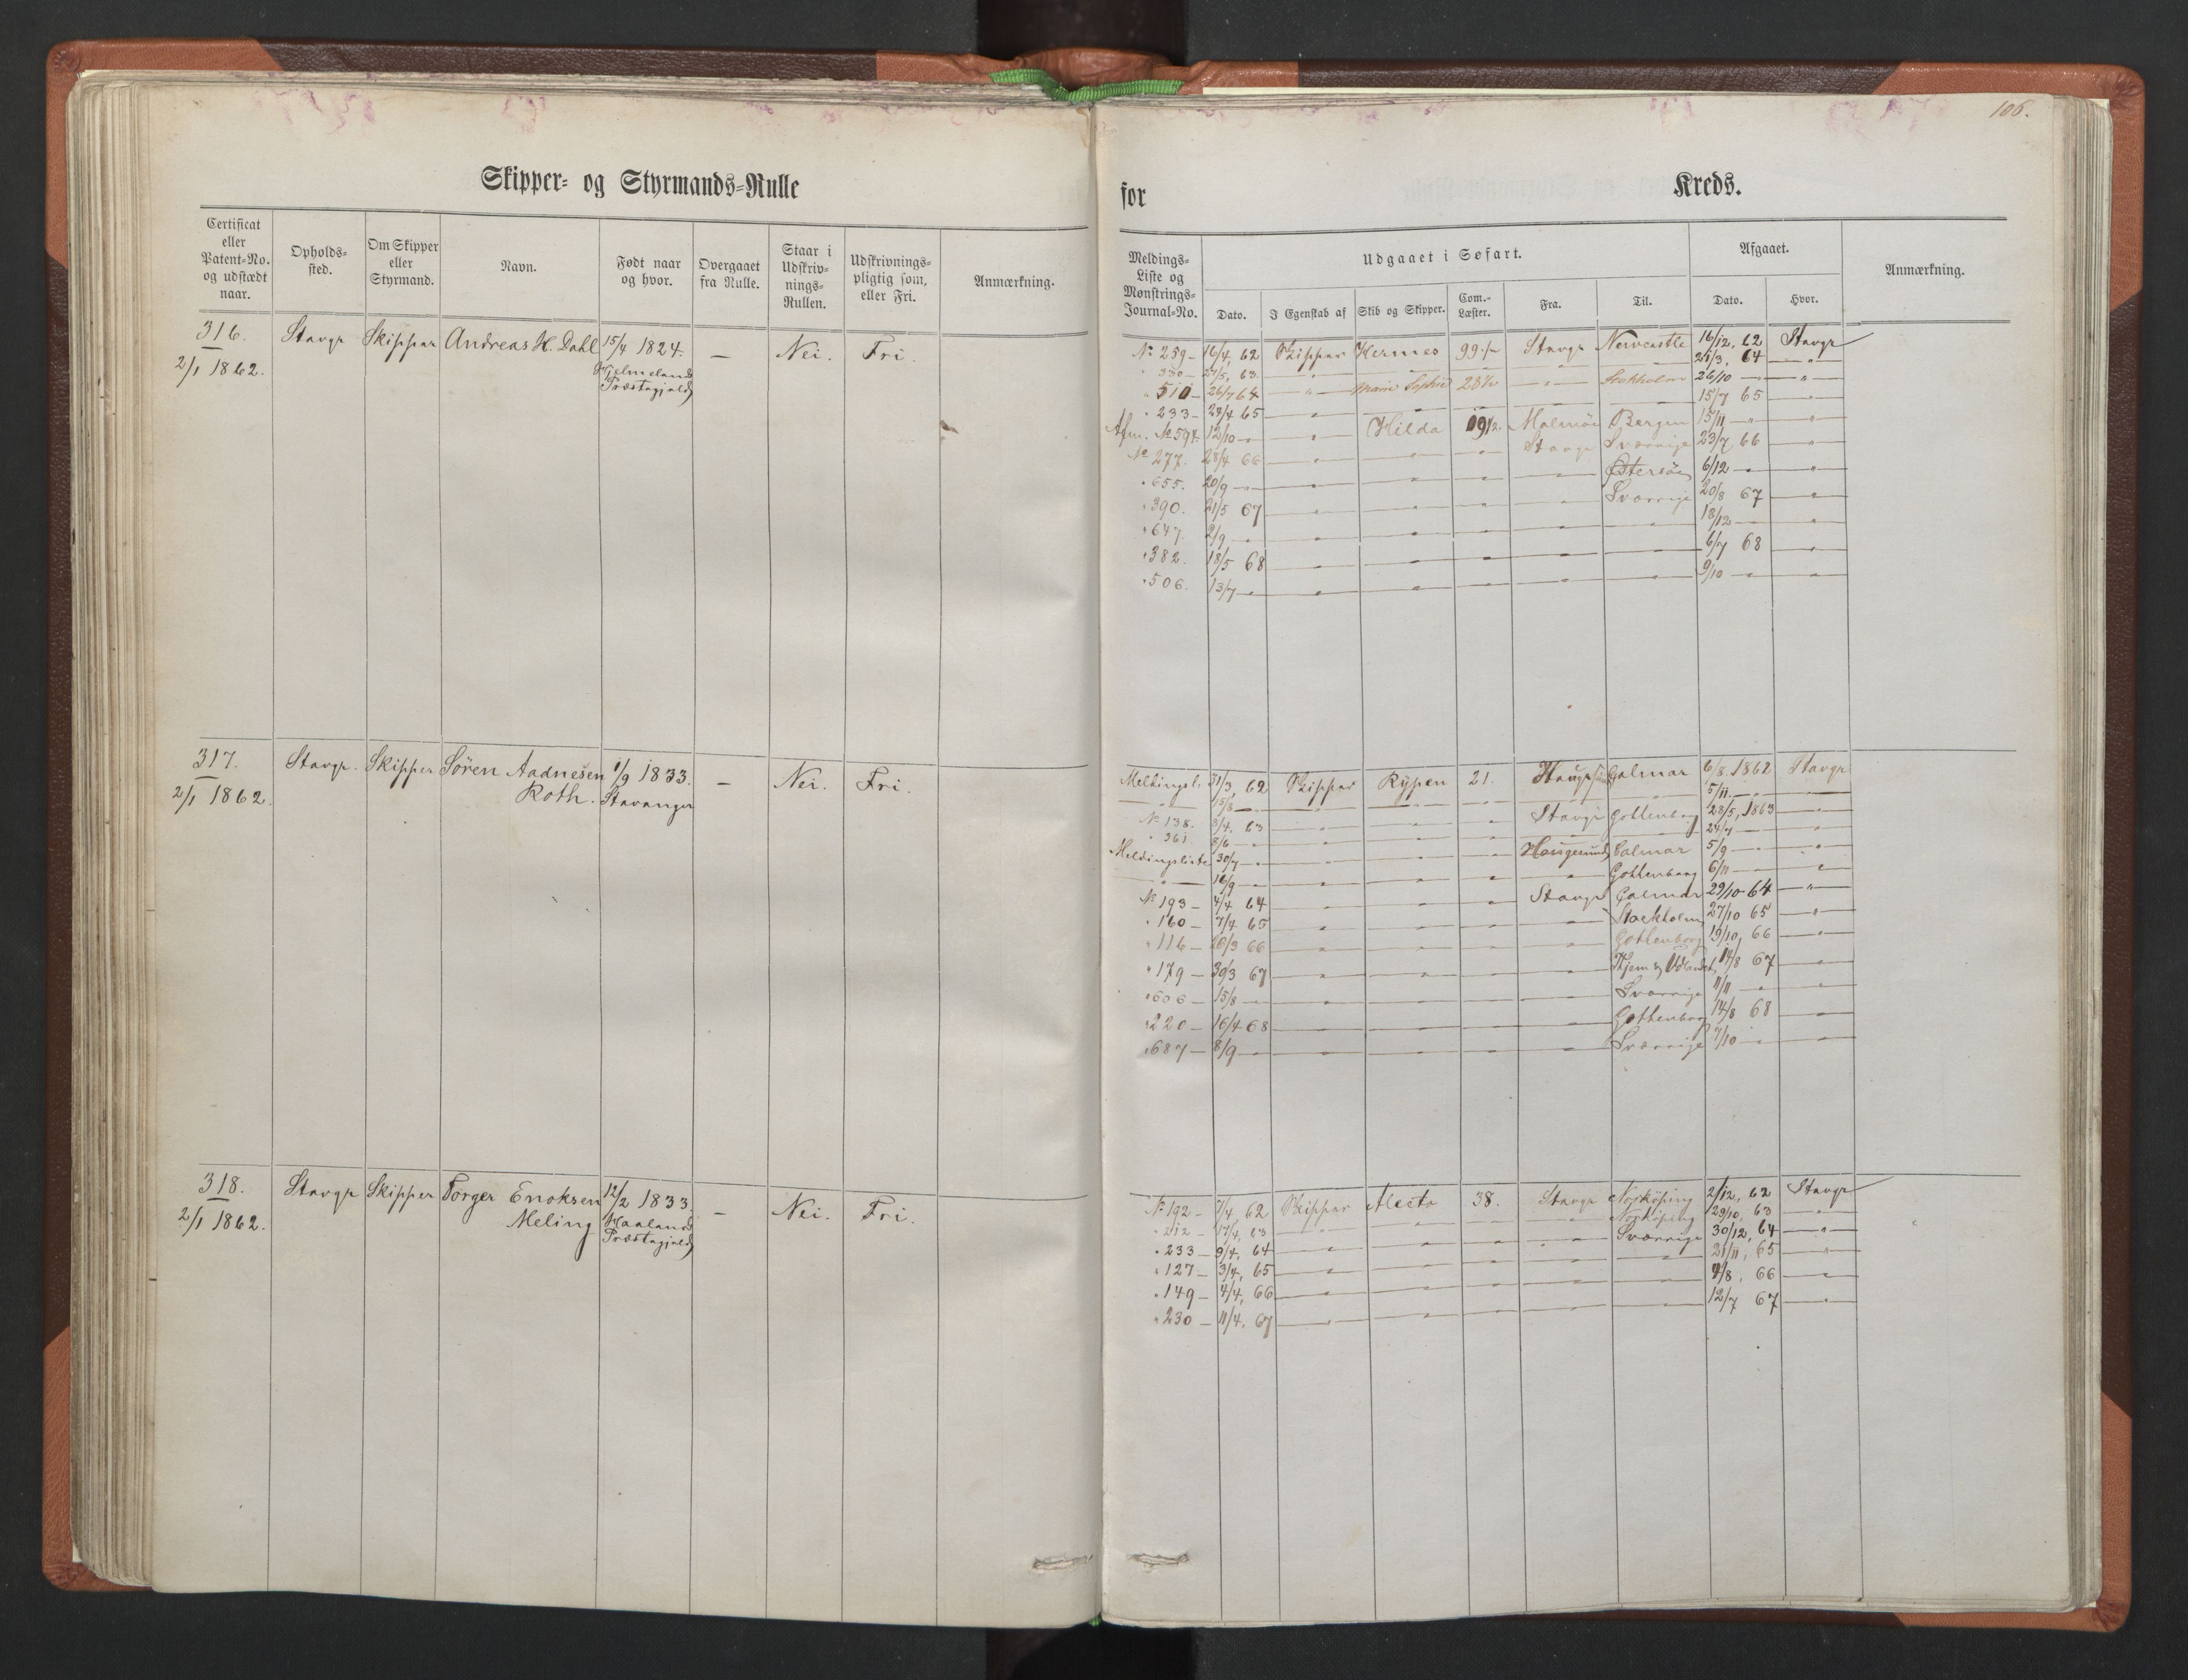 106.
Skipper- og Styrmands-Rulle
for Kreds.
Certificat eller Patent-No. og udstædt naar.
Opholds-sted.
Om Skipper eller Styrmand.
Navn.
Født naar og hvor.
Overgaaet fra Rulle.
Staar i Udskriv-nings-Rullen.
Udskrivnings-pligtig som, eller Fri.
Anmærkning.
Meldings-Liste og Mønstrings-Journal-No.
Udgaaet i Søfart.
Dato.
I Egenskab af
Skib og Skipper.
Com.-Læster.
Fra.
Til.
Afgaaet.
Dato.
Hvor.
Anmærkning.
316. Stavgr Skipper Andreas H. Dahl 15/4 1824. — Nei. Fri.
2/1 1862. Hjelmeland
Præstegjæld
No 259 — 16/4, 62 Skipper Hermes 99 Stavgr Newcastle 16/12, 62 Stavgr
" 330 — 27/5, 63. 21/3, 64 — " —
" 510 — 26/7 64 — " — Marie Sophie 28½ — " — Stokholm 26/10 — " —
" 233 — 28/4 65 15/7 65 — " —
Afm. No 597. 12/10 — " — Hilda 19½. Malmöe Bergen 15/11 — " —
No 277. 28/4 66 — " — Stavgr Sverrige 23/7 66 — " —
" 655. 20/9 — " — Østersöe 6/12 — " —
" 390. 21/5 67 — " — Sverrige 20/8 67 — " —
" 647. 2/9 — " — 18/12 — " —
" 382. 18/5 68 — " — 6/7 68 — " —
" 506. 13/7 — " — 9/10 — " —
317. Stavgr. Skipper Søren Aadnesen 1/9 1833. — Nei. Fri.
2/1 1862. Roth. Stavanger
Meldingsl. 31/3, 62 Skipper Rypen 21. Calmar 6/8. 1862 Stavgr
— " — 15/8 — " — 5/11. — " —
No 138. 8/4, 63 — " — Stavgr Gottenborg 28/5, 1863 — " —
" 361 8/6 — " — 24/7 — " —
Meldingsliste 30/7 — " — Haugesund Calmar 5/9 — " —
— " — 16/9 — " — Gottenborg 6/11 — " —
No 193 — 4/4 64 — " — Stavgr Calmar 29/10 64 — " —
" 160 — 7/4 65 — " — Stockholm 27/10 65 — " —
" 116 — 26/3 66 — " — Gothenborg 19/10, 66 — " —
" 179 — 30/3 67 — " — Hjem og Udlandet 14/8 67 — " —
" 606 — 15/8 — " — Sverrige 11/11 — " —
" 220 — 16/4 68 — " — Gothenborg 14/8 68 — " —
" 687 — 8/9 — " — Sverrige 7/10 — " —
318. Stavgr Skipper Torger Enoksen 12/2 1833. — Nei. Fri.
2/1 1862. Meling Haaland
Præstegjæld
No 192 — 7/4, 62 Skipper Alecto 38. Stavgr Norköping 2/12, 62 Stavgr
" 212 — 17/4, 63 — " — Norköping 29/10, 63 — " —
" 233 — 9/4, 64 — " — Sverrige 30/12, 64 — " —
" 127 — 3/4, 65 — " — 21/11, 65 — " —
" 149 — 4/4, 66 — " — 4/8, 66 — " —
" 230 — 11/4, 67 — " — 12/7 67 — " —